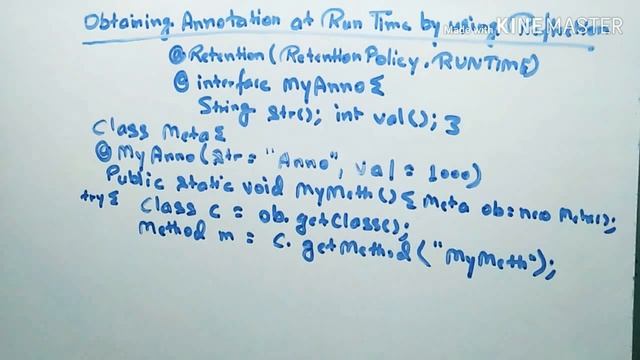 Obtaining Annotation at Run Time by using Reflection
Made with KINEMASTER
@Retention(RetentionPolicy.RUNTIME)
@ interface MyAnno{
String str(); int val(); }
Class Meta{
@ MyAnno(str = "Anno", val = 1000)
Public static void MyMeth(){ Meta ob = new Meta();
try{ Class c = ob.getClass();
Method m = c. getMethod("MyMeth");